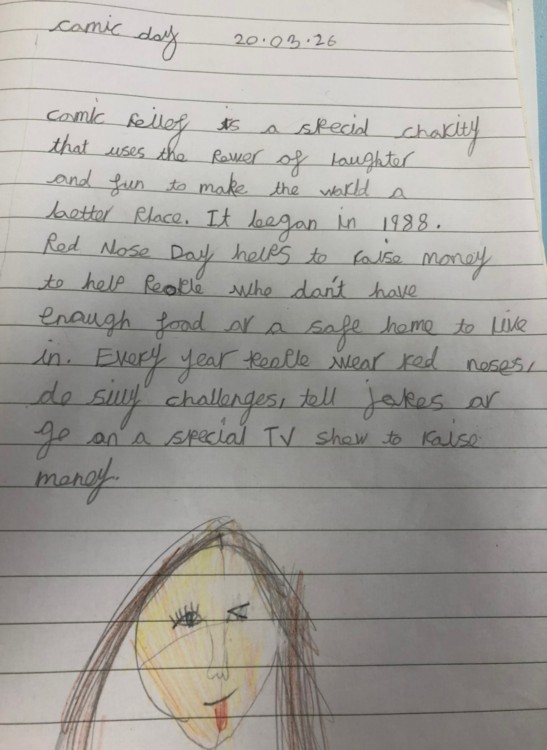 comic day 20.03.26
comic Relief is a special charity
that uses the Power of laughter
and fun to make the world a
better Place. It began in 1988.
Red Nose Day helps to raise money
to help People who don't have
enough food or a safe home to live
in. Every year People wear red noses,
do silly challenges, tell jokes or
go on a special TV show to raise
money.